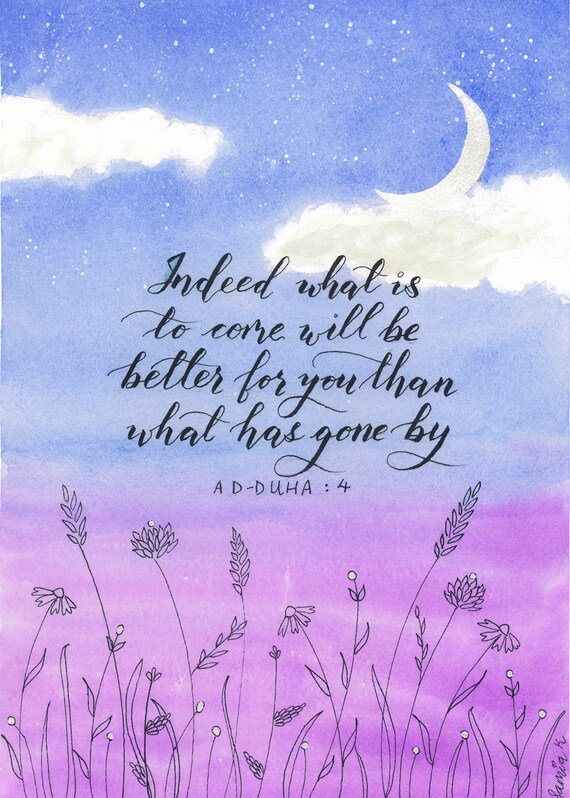 Indeed what is
to come will be
better for you than
what has gone by
AD-DUHA : 4
Samia K